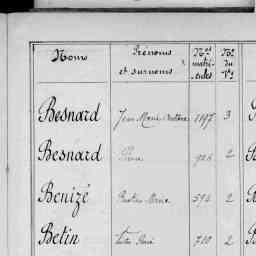 Noms Prénoms et surnoms Nos matri- cules No du Vol
Besnard Jean Marie 1197 3
Besnard Pierre 926 2
Benizé Marie 594 2
Betin 710 2